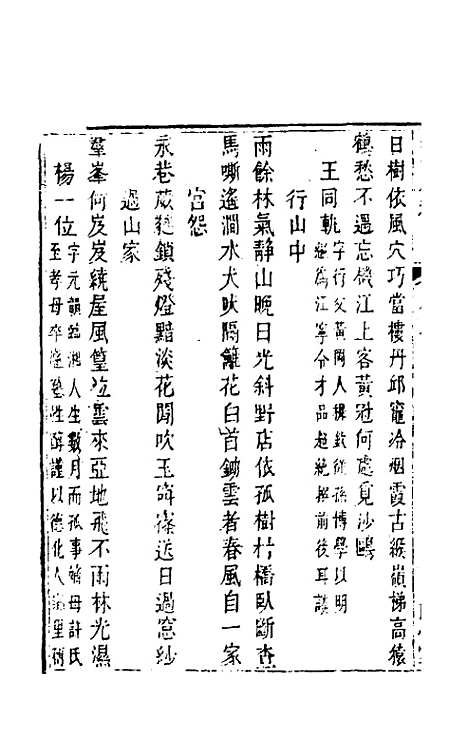 日樹依風穴巧當樓丹邱竈冷烟霞古緱嶺梯高猿
鶴愁不過忘機江上客黃冠何處覓沙鷗
王同軌字行父黃岡人稷敎從孫博學以明
爲江寧令才品超絶前後耳談
行山中
雨餘林氣靜山晚日光斜野店依孤樹村橋臥斷杳
馬嘶遙澗水犬吠隔籬花白首鋤雲者春風自一家
宮怨
永巷葳蕤鎖殘燈黯淡花聞吹玉送日過窓紗
過山家
羣峯何岌岌繞屋風篁竝雲來亞地飛不雨林光濕
楊一位字元韻臨湘人生數月而孤事嫡母計氏
至孝母卒廬墓性醇謹以德化人里